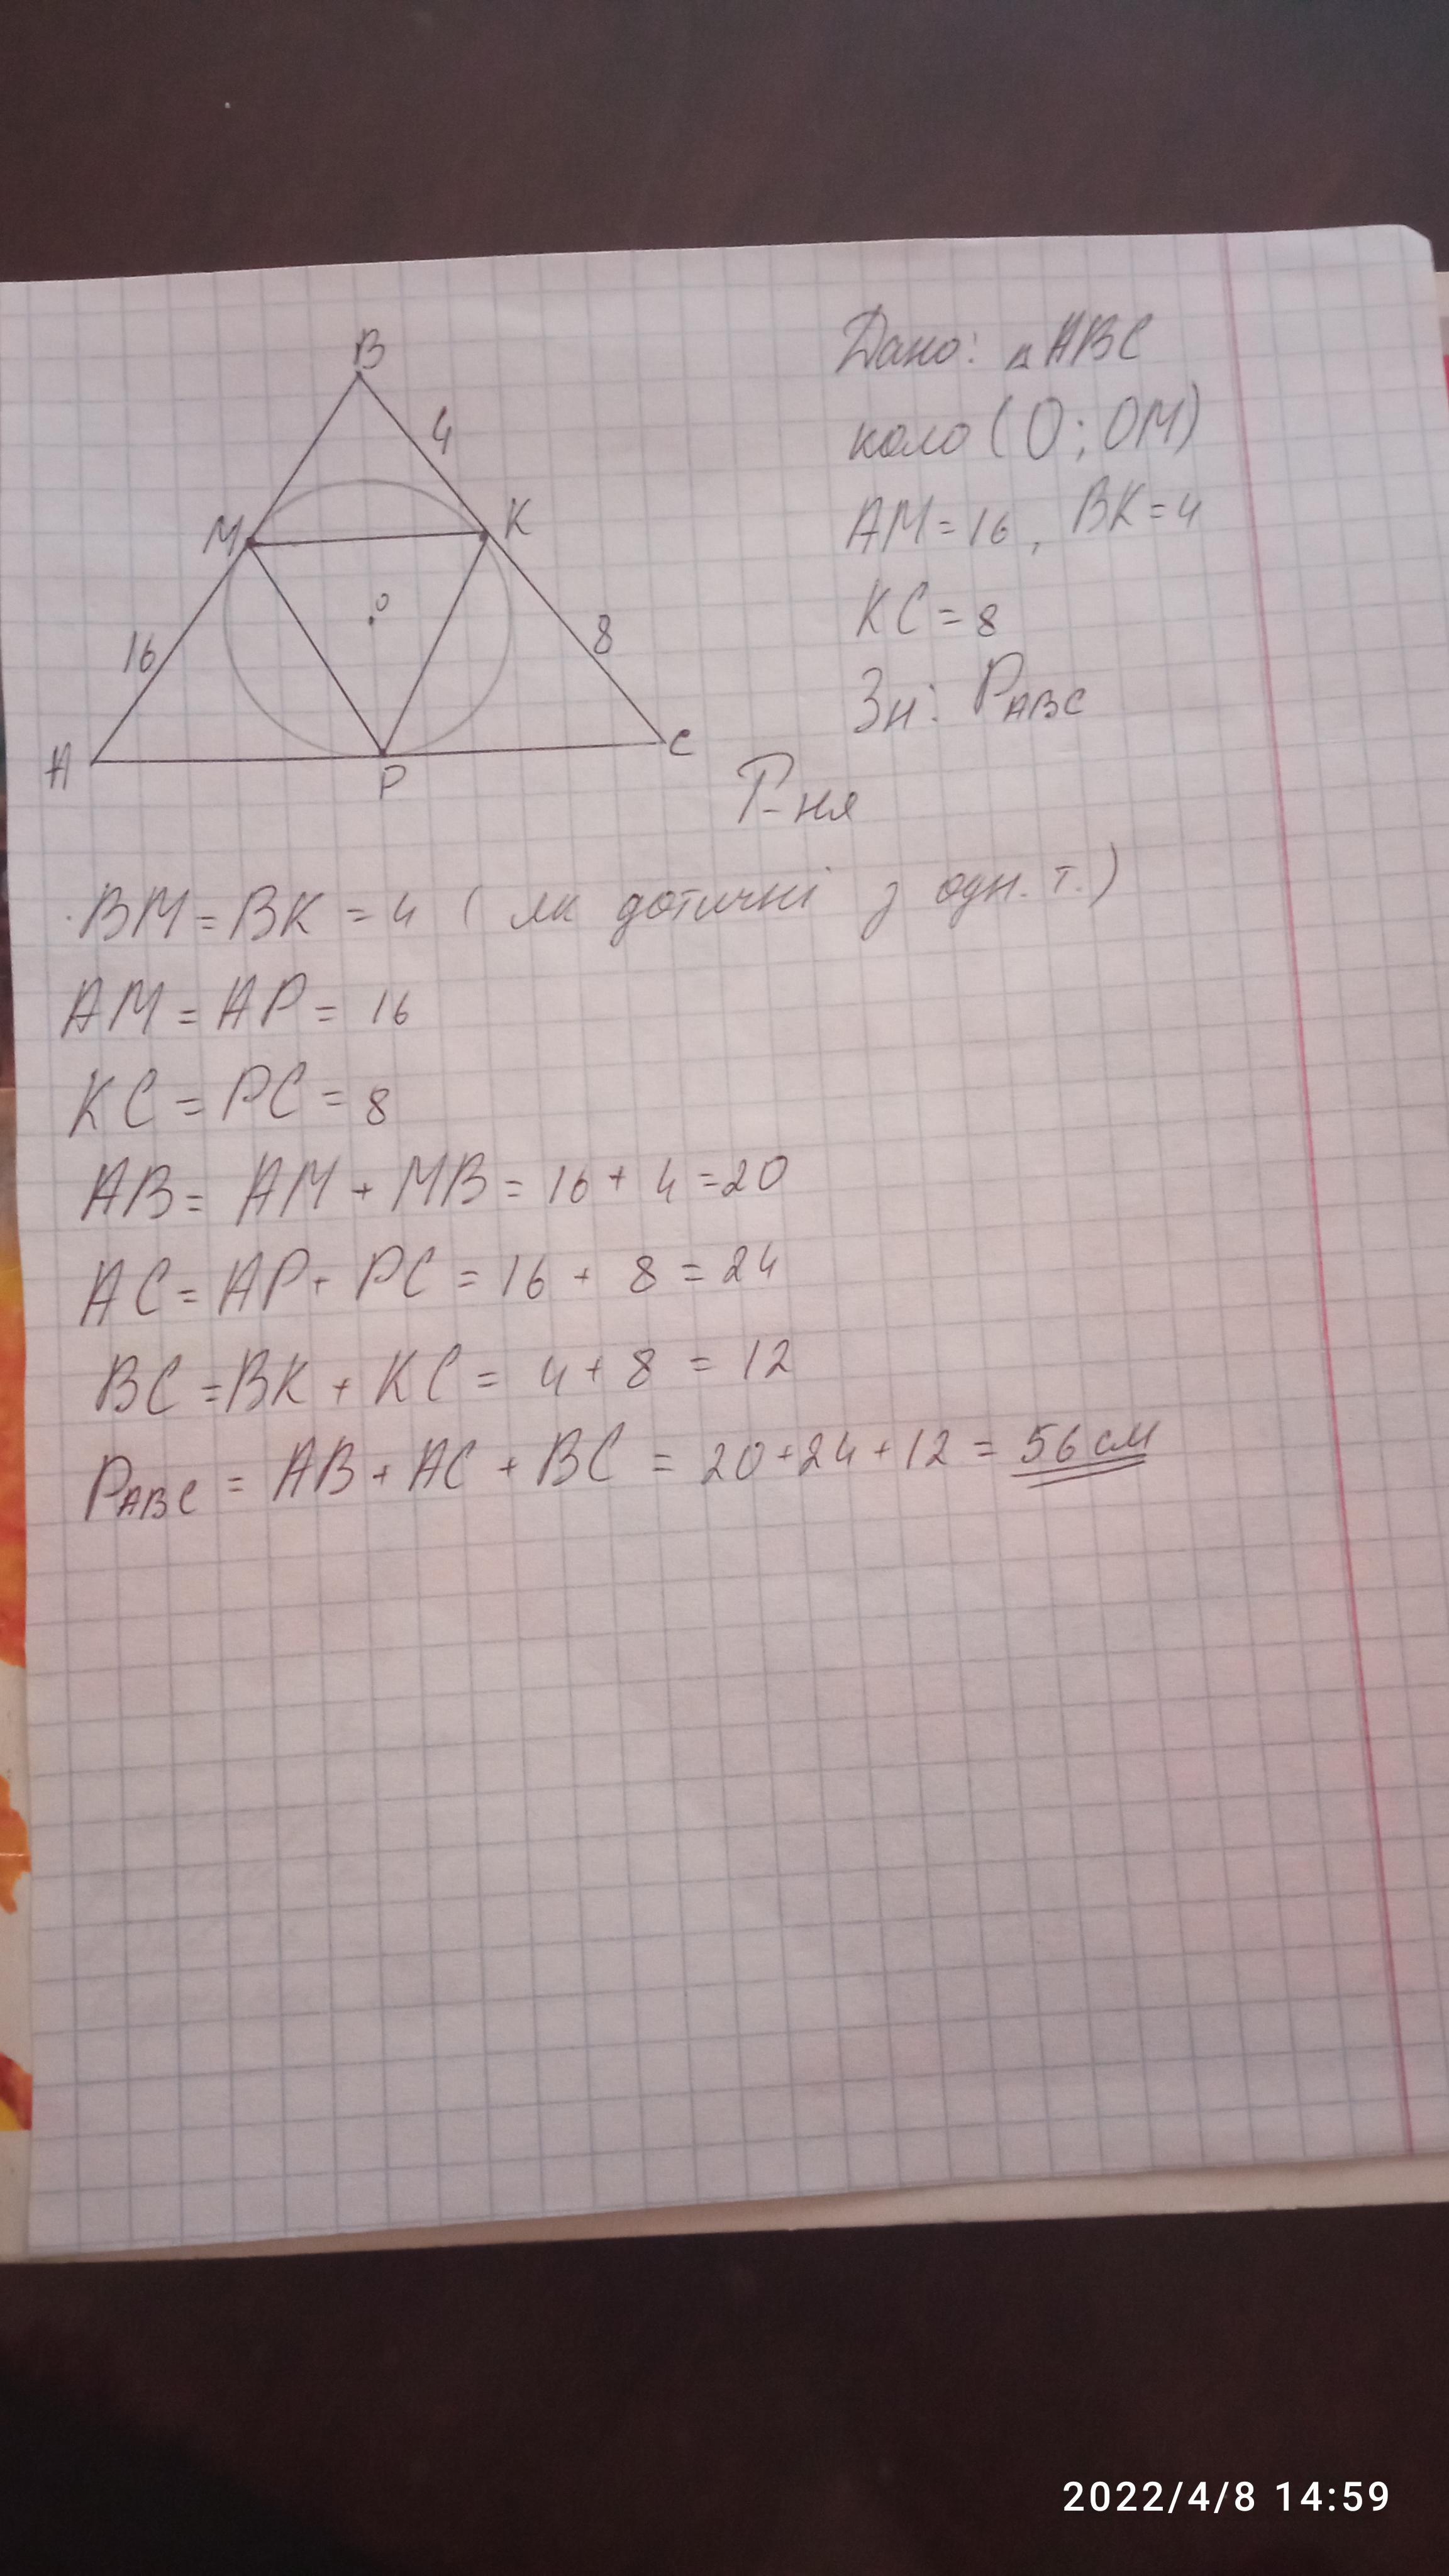 B
4
M
K
O
16
8
A
P
C
Дано: △ABC
коло (O; OM)
AM = 16, BK = 4
KC = 8
Зн: PABC
Р-ня
BM = BK = 4 (як дотичні з одн. т.)
AM = AP = 16
KC = PC = 8
AB = AM + MB = 16 + 4 = 20
AC = AP + PC = 16 + 8 = 24
BC = BK + KC = 4 + 8 = 12
PABC = AB + AC + BC = 20 + 24 + 12 = 56 см
2022/4/8 14:59